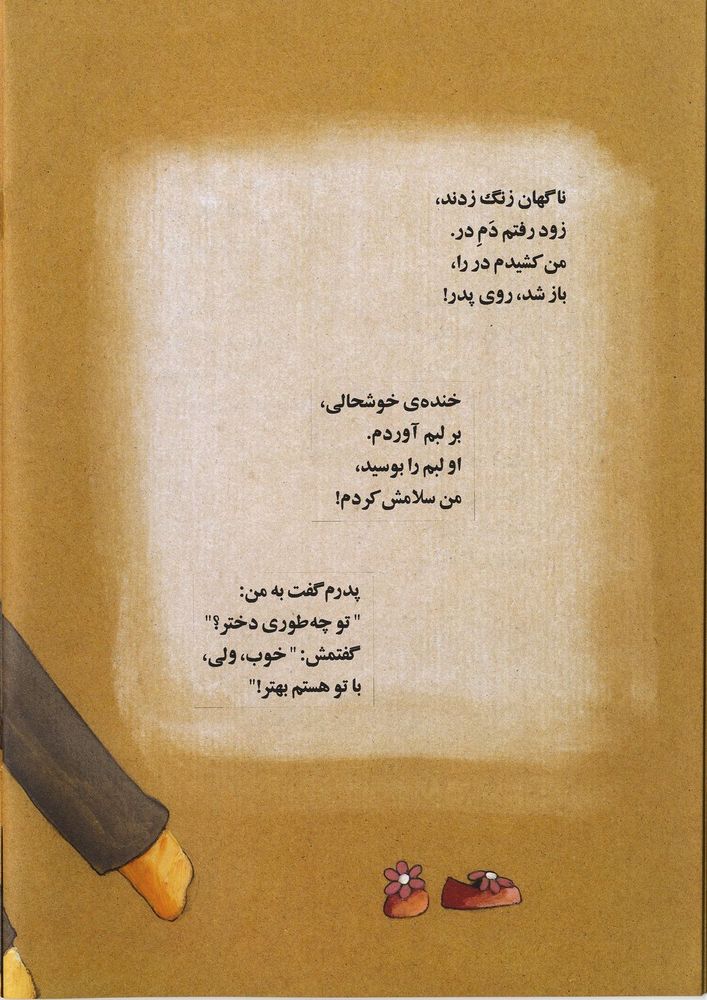 ناگهان زنگ زدند،
زود رفتم دَمِ در.
من کشیدم در را،
باز شد، روی پدر!
خنده‌ی خوشحالی،
بر لبم آوردم.
او لبم را بوسید،
من سلامش کردم!
پدرم گفت به من:
" تو چه‌طوری دختر؟"
گفتمش: " خوب، ولی،
با تو هستم بهتر!"